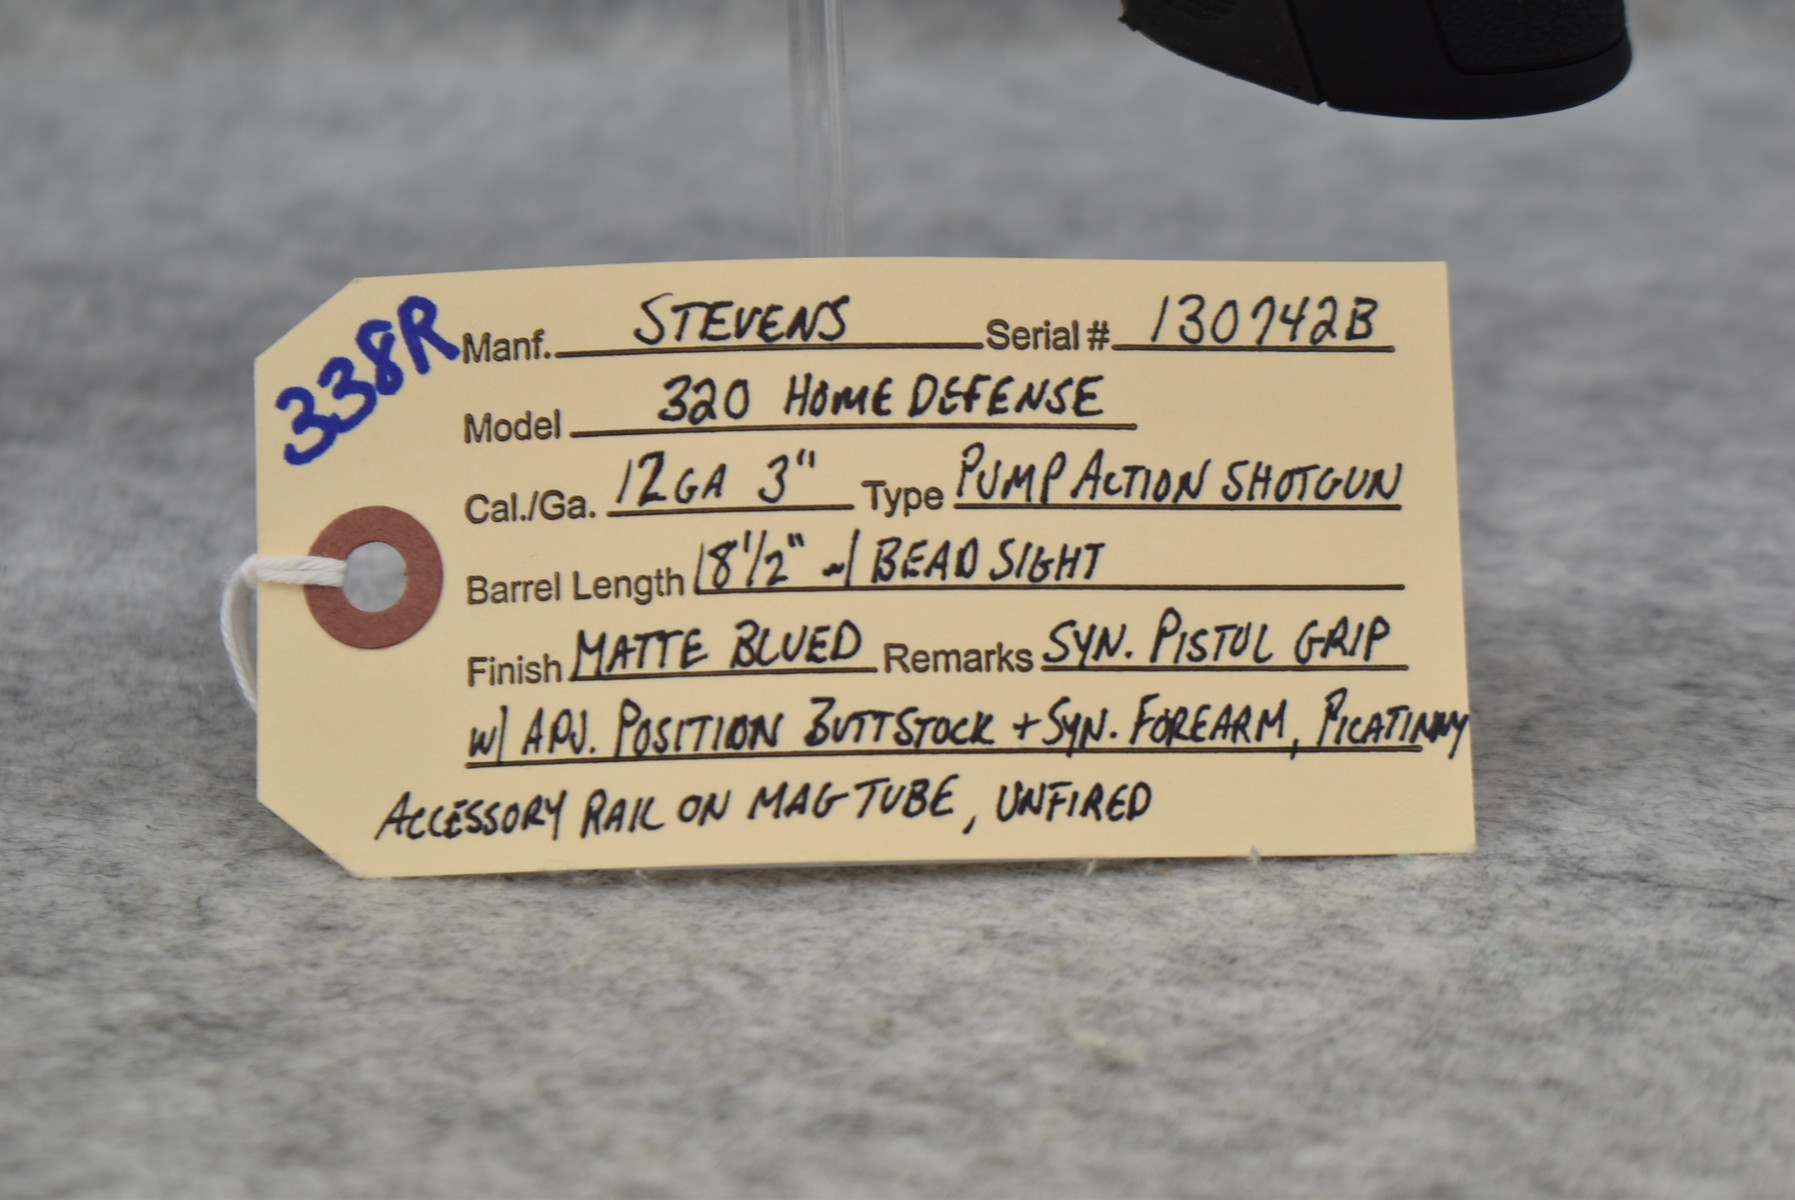 338R
Manf. STEVENS Serial # 130742B
Model 320 HOME DEFENSE
Cal./Ga. 12GA 3" Type PUMP ACTION SHOTGUN
Barrel Length 18 1/2" w/ BEAD SIGHT
Finish MATTE BLUED Remarks SYN. PISTOL GRIP
w/ ADJ. POSITION BUTTSTOCK + SYN. FOREARM, PICATINNY
ACCESSORY RAIL ON MAG TUBE, UNFIRED